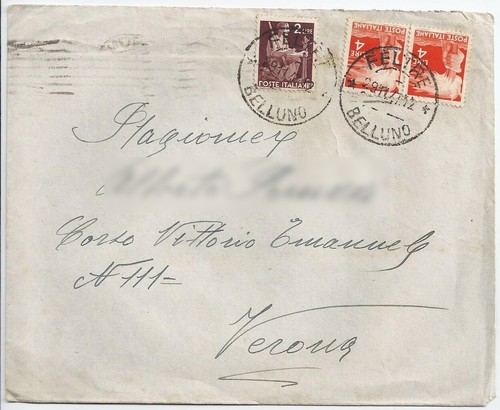 2 LIRE
POSTE ITALIANE
LIRE 4
POSTE ITALIANE
4
POSTE ITALIANE
FELTRE
BELLUNO
FELTRE
BELLUNO
Ragionier
Corso Vittorio Emanuele
N 111=
Verona